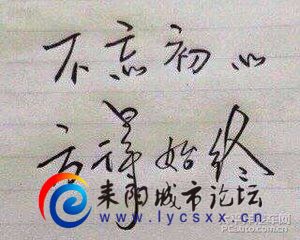 不忘初心
方得始终
耒阳城市论坛
www.lycsxx.cn
PCauto.com.cn